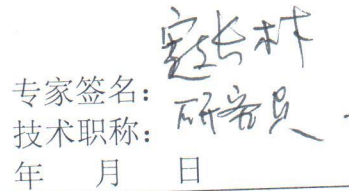 专家签名：
技术职称：研究员
年 月 日